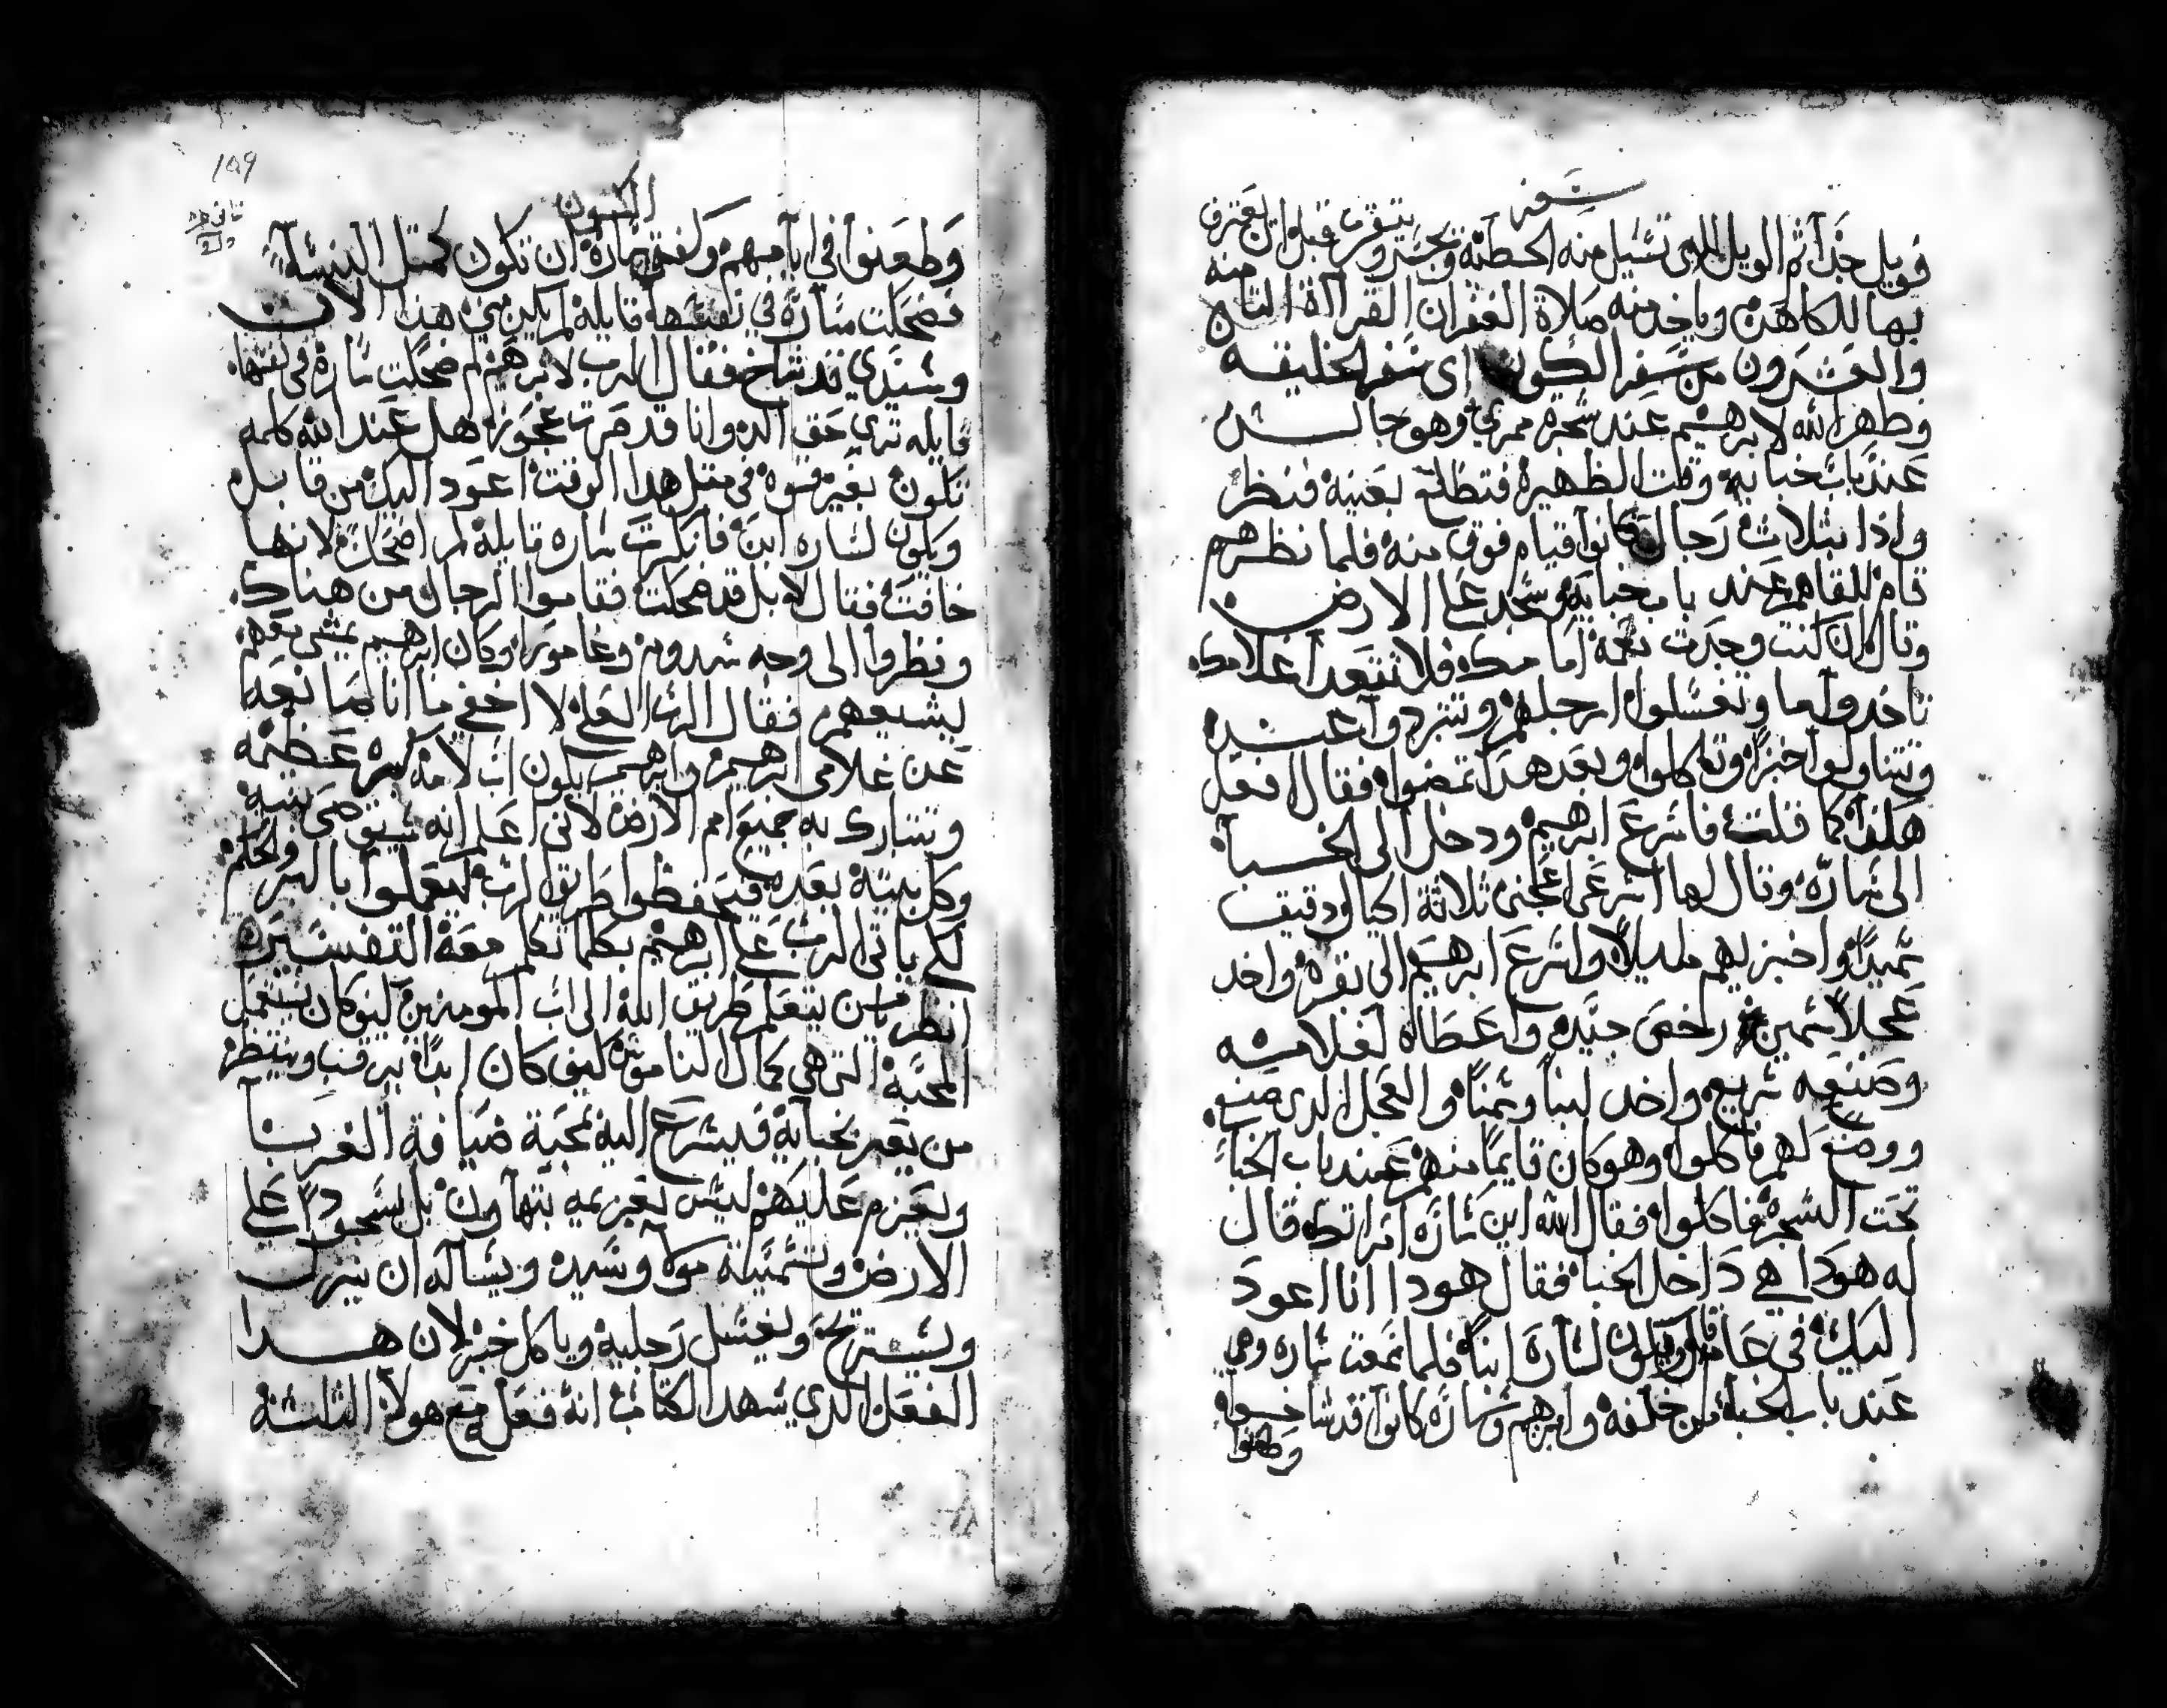 سفر
فويل جدا ثم الويل الذى تسيل منه الحطنة ويجسر ويتقرب قبل ان يعترف
بها للكاهن وياخد منه صلاة الغفران القراة التاسع منه
والعشرون من سفر الكون اى سفر الخليقه
وظهر الله لابرهيم عند شجرة ممري وهو جالس
عند باب خبايه وقت الظهيرة فتطلع بعنيه فنظر
واذا بثلاث رجال كانوا قيام فوق منه فلما نظرهم
قام للقاهم عند باب خبايه وسجد على الارض
وقال ان كنت وجدت نعمه امامك فلا تتعدا غلامك
تاخدوا ما وتغسلوا ارجلكم وتتبردوا عند
وتتناولوا خبزا وتاكلوا وبعد هدا تمضوا فقال افعل
هكدا كما قلت فاسرع ابرهيم ودخل الى الخبا
الى ساره وقال لها اسرعى اعجنى ثلاثة اكيال دقيق
سميدا واخبزيهم مليلا واسرع ابرهيم الى بقره واخد
عجلا سمين رخص جيد واعطاه لغلامه
وصنعه سريع واخد لبنا وسمنا والعجل الدى صنع
ووضع لهم فاكلوا وهو كان قايما منهم عند باب الخبا
تحت الشجرة فاكلوا فقال الله اين ساره امراتك قال
له هودا هي داخل الخبا فقال هودا انا اعود
اليك في عام قابل ويكون لساره ابنا فلما سمعت ساره وهي
عند باب الخبا من خلفه وابرهيم وساره كانوا قد شاخوا
وطعنوا
109
الكون
وطعنوا في ايامهم وكفت ساره ان تكون كمثل النسا
فضحكت ساره في نفسها قايلة لم يكن مني هدا الان
وسيدي قد شاخ فقال الرب لابرهيم لم ضحكت ساره في نفسها
قايله تري حق الد وانا قد صرت عجوزه هل عند الله كلمه
تكون بغير قوه في مثل هدا الوقت اعود اليك من قابل
ويكون لساره ابن فانكرت ساره قايلة لم اضحك لانها
خافت فقال لا بل قد ضحكت فقاموا الرجال من هناك
ونظروا الى وجه سدوم وغامورا وكان ابرهيم يمشى معهم
يشيعهم فقال الرب العلي لا اخفي ما انا صانعه
عن غلامى ابرهيم وابرهيم يكون اب لامة كبيره عظيمه
وتتبارك به جميع امم الارض لانى اعلم انه سيوصى بنيه
وكل بيته بعده فيحفظوا طريق الرب ليعملوا بالبر والحكم
لكي ياتى الرب على ابرهيم بكلما تكلم معه التفسير
انظر يا من يتعلم طريق الله الى اب المومنين كيف كان يستعمل
المحبة التى هي كمال الناموس كيف كان ابدا يرقب وينتظر
من يعبر بخبايه فيسرع اليه بمحبة ضيافة الغربا
ويعزم عليهم ليس بعزيمه بتهاون بل بسجود على
الارض وتسميته مولا وسيد ويساله ان ينزل
ويستريح ويغسل رجليه وياكل خبز لان هدا
الفعل الدي شهد الكتاب انه فعل مع هولا الثلثه